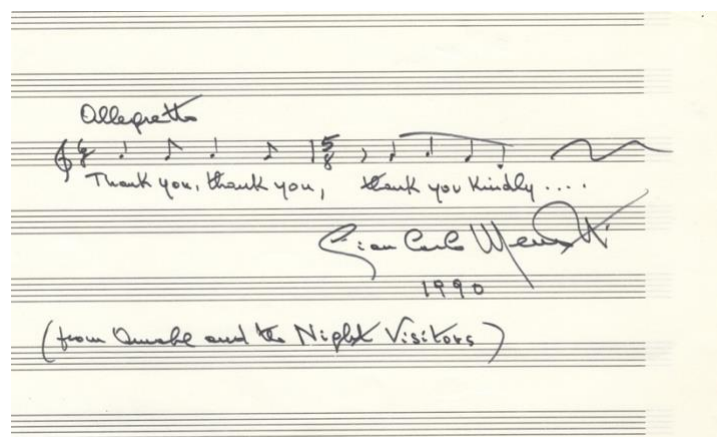 Allegretto
6/8 5/8
Thank you, thank you, thank you kindly ....
Gian Carlo Menotti
1990
(from Amahl and the Night Visitors)